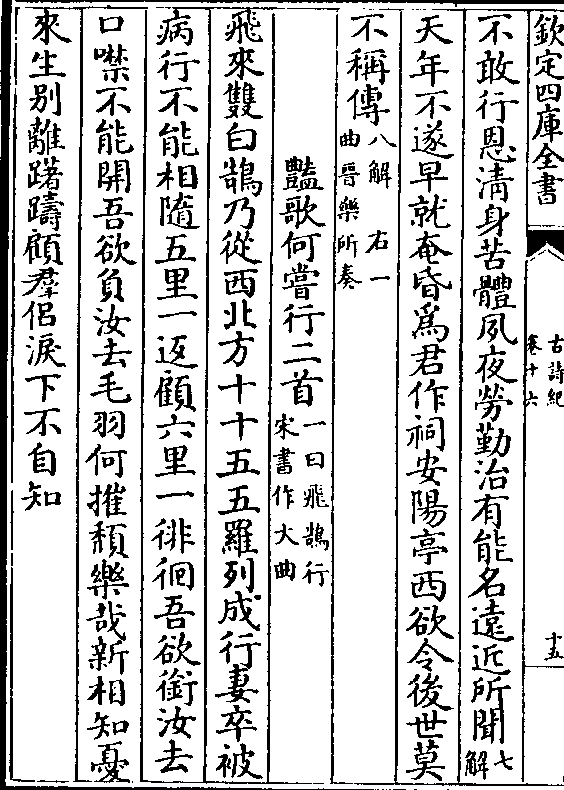 欽定四庫全書
古詩紀
卷十六
十五
不敢行恩清身苦體夙夜勞勤治有能名遠近所聞七解
天年不遂早就奄昏爲君作祠安陽亭西欲令後世莫
不稱傳八解 右一曲晉樂所奏
豔歌何嘗行二首一曰飛鵠行宋書作大曲
飛來雙白鵠乃從西北方十十五五羅列成行妻卒被
病行不能相隨五里一返顧六里一徘徊吾欲銜汝去
口噤不能開吾欲負汝去毛羽何摧頹樂哉新相知憂
來生别離躇躊顧羣侣淚下不自知